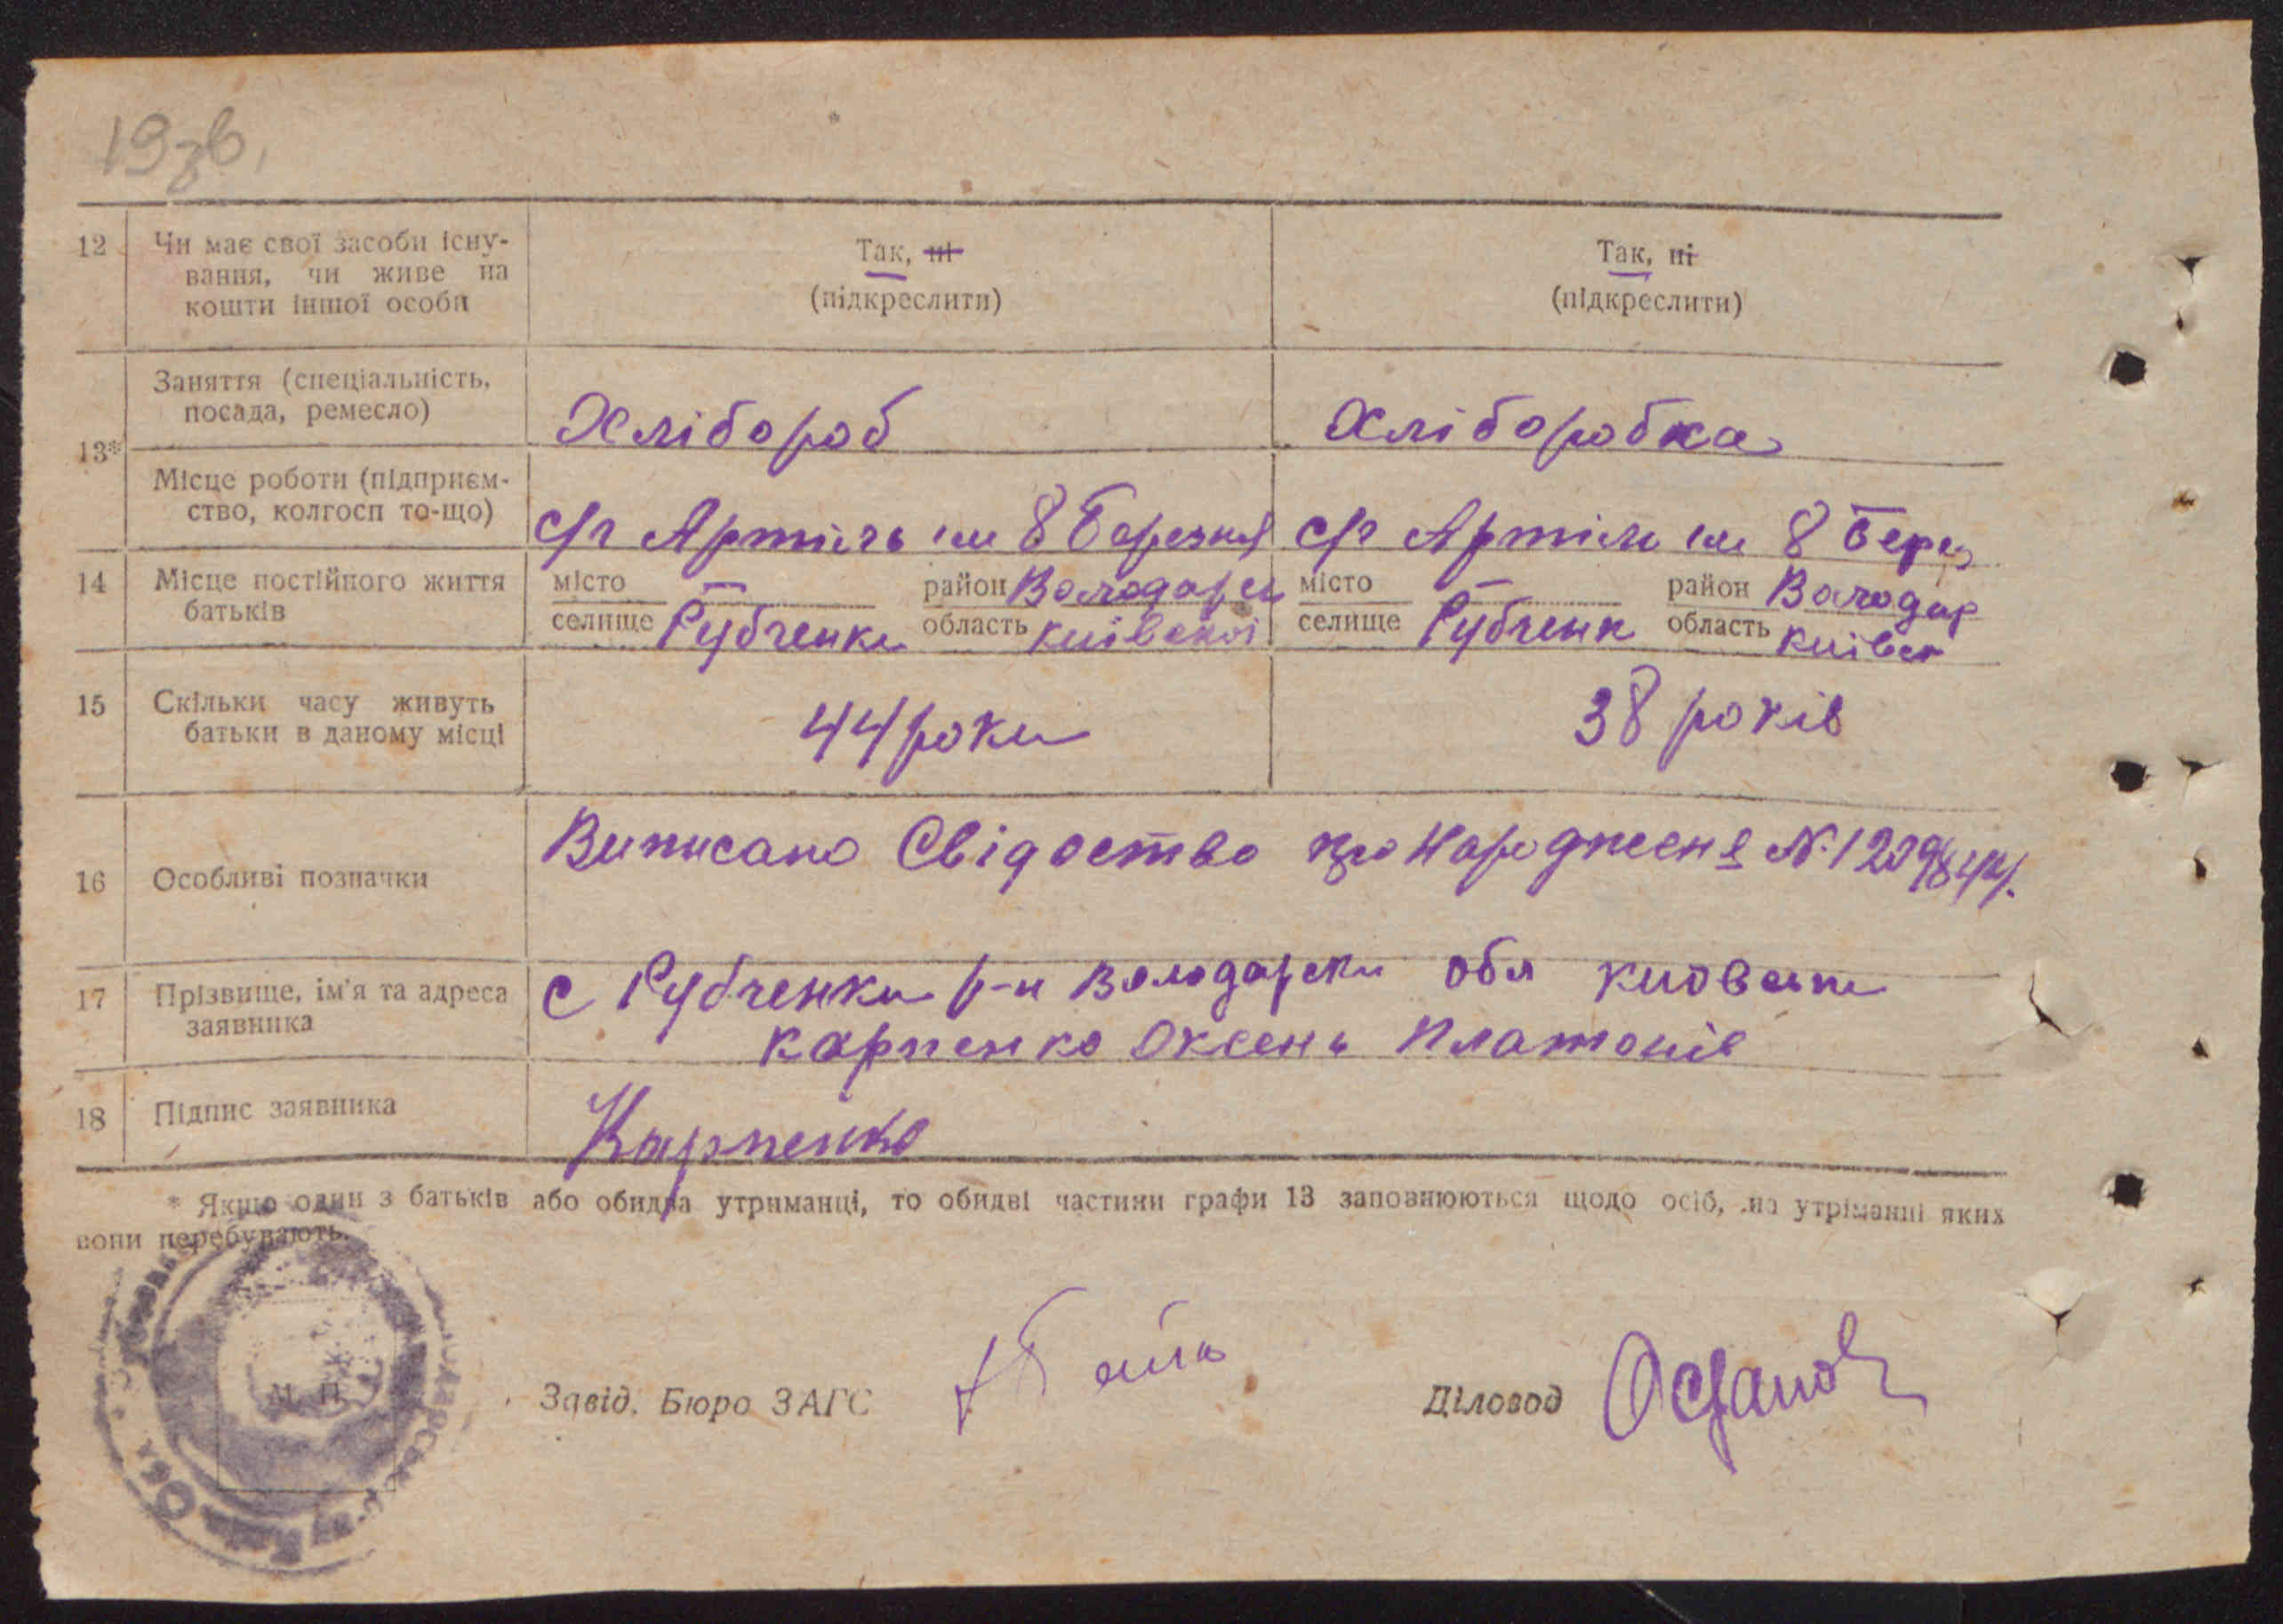 19зв.
12 Чи має свої засоби існу-
вання, чи живе на
кошти іншої особи
Так, ні
(підкреслити)
Так, ні
(підкреслити)
13*
Заняття (спеціальність,
посада, ремесло)
Хлібороб
Хліборобка
Місце роботи (підприєм-
ство, колгосп то-що)
с/г Артіль ім 8 Березня
с/г Артіль ім 8 Берез
14 Місце постійного життя
батьків
місто — район Володарськ
селище Рубченки область київської
місто — район Володар
селище Рубченк область київск
15 Скільки часу живуть
батьки в даному місці
44 роки
38 років
16 Особливі позначки
Виписано Свідоство про Народженє №
17 Прізвище, ім'я та адреса
заявника
с Рубченки р-н Володарски обл
карпенко Оксень Платонів
18 Підпис заявника
Карпенко
* Якщо один з батьків або обидва утриманці, то обидві частини графи 13 заповнюються щодо осіб, на утріманні яких
вони перебувають.
М. П.
Завід. Бюро ЗАГС
Діловод